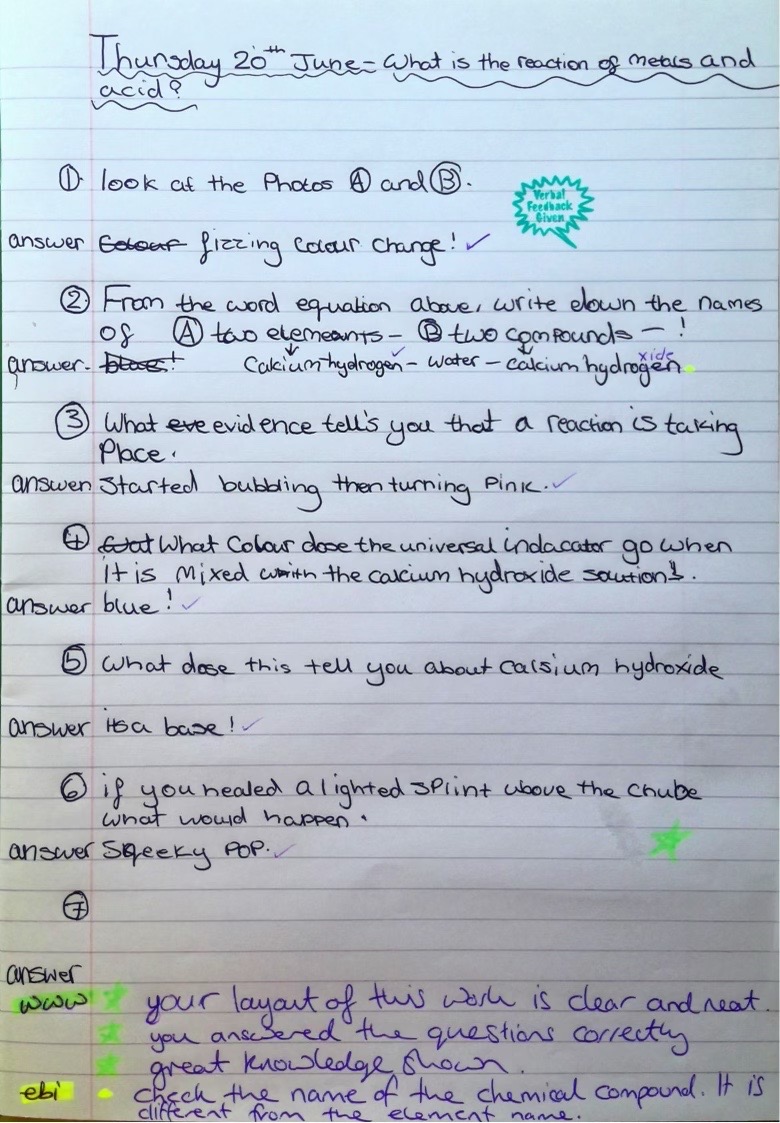 Thursday 20th June - What is the reaction of metals and
acid?
① look at the Photos Ⓐ and Ⓑ.
Verbal
Feedback
Given
answer Colour fizzing colour change! ✓
② From the word equation above, write down the names
of Ⓐ two elemeants - Ⓑ two compounds - !
answer - Calcium hydrogen ✓ - water - calcium hydrogen. xide
③ What eve evidence tell's you that a reaction is taking
Place.
answer Started bubbling then turning Pink. ✓
④ What Colour dose the universal indacator go when
it is mixed with the calcium hydroxide soution!.
answer blue! ✓
⑤ What dose this tell you about calsium hydroxide
answer its a base! ✓
⑥ if you healed a lighted splint above the chube
what would happen.
answer Sqeeky POP. ✓
⑦
answer
www your layout of this work is clear and neat.
you answered the questions correctly
great knowledge shown.
ebi • check the name of the chemical compound. It is
different from the element name.